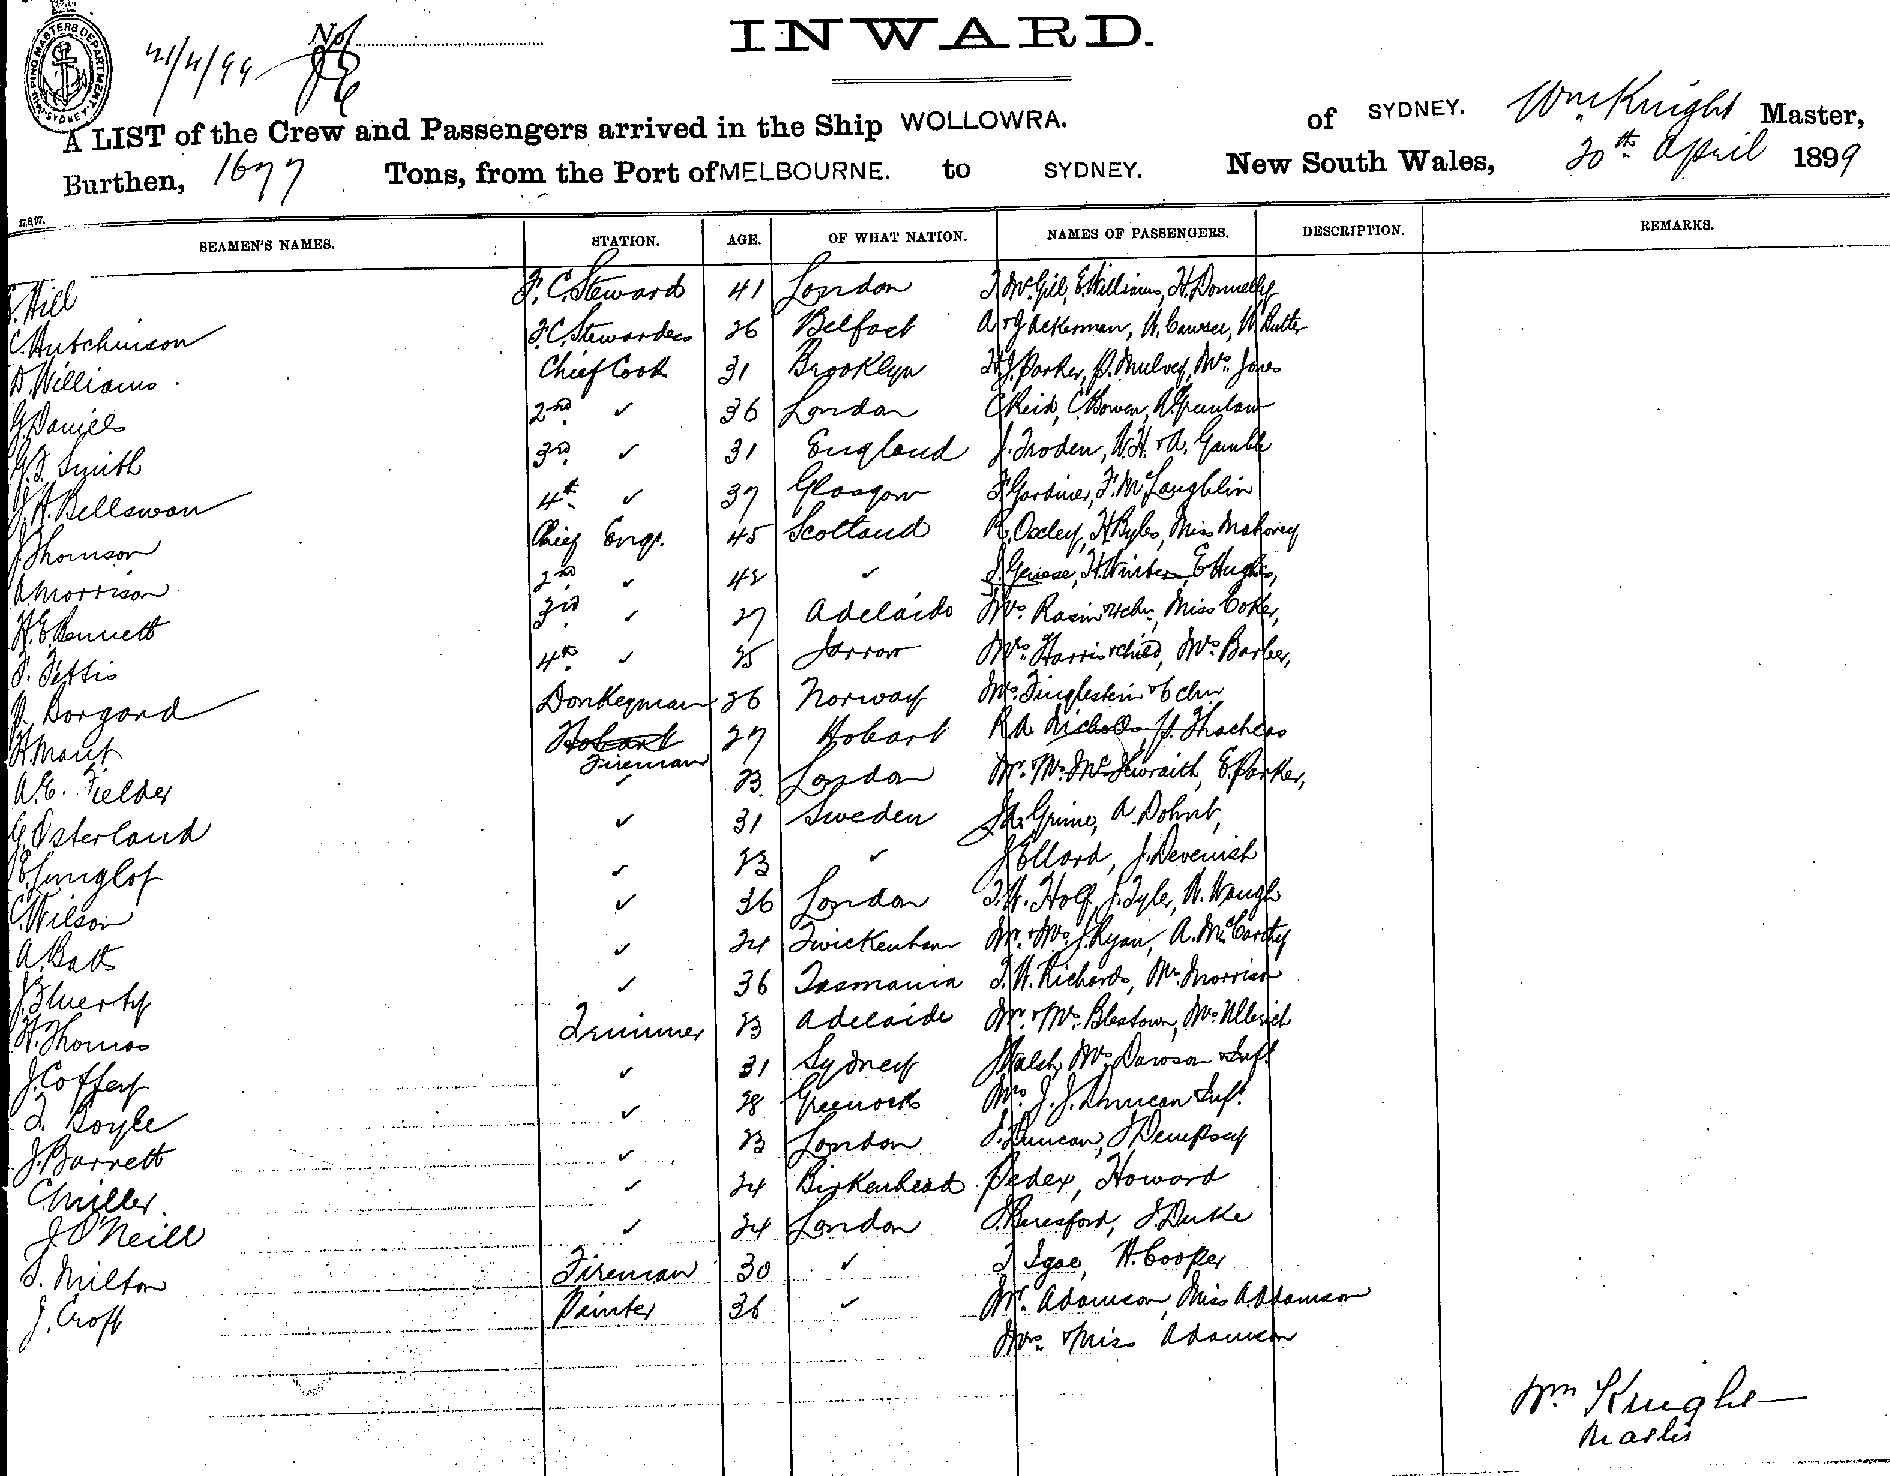 INWARD.
No.
21/4/99
SHIPPING MASTERS DEPARTMENT SYDNEY
A LIST of the Crew and Passengers arrived in the Ship WOLLOWRA. of SYDNEY. Wm. Knight Master,
Burthen, 1677 Tons, from the Port of MELBOURNE. to SYDNEY. New South Wales, 20th April 1899
SEAMEN'S NAMES. STATION. AGE. OF WHAT NATION. NAMES OF PASSENGERS. DESCRIPTION. REMARKS.
Hill F. C. Steward 41 London E. Williams, H. Donnelly
C. Hutchinson F. C. Stewardess 26 Belfast A & J Ackerman, W. Rutter
D. Williams Chief Cook 31 Brooklyn H. J. Parker, P. Mulvey, Mrs. Jones
G. Daniels 2nd ✓ 36 London C. Reid, C. Bowen, A. Greenlaw
Smith 3rd ✓ 31 England J. Troden, W. H. & A. Gamble
J. H. Bellswan 4th ✓ 37 Glasgow F. Gardiner, F. McLaughlin
J. Thomson Chief Engr. 45 Scotland R. Oxley, H. Byles, Miss Mahoney
A. Morrison 2nd ✓ 42 ✓ E. Hughes,
H. E. Bennett 3rd ✓ 27 Adelaide Mrs. Miss Coker,
Fettis 4th ✓ 25 Jarrow Mrs. Harris & child, Mrs. Barber,
Borgard Donkeyman 26 Norway Mrs. Finglestein & 6 chn
H. Mant Hobart 27 Hobart R. A. Nicholls,
Fireman
A. E. Fielder ✓ 23 London Mr. Mrs. E. Parker,
G. Osterland ✓ 31 Sweden Grime, A. Dohnt,
✓ 23 ✓ J. Ellard, J. Devenish
C. Wilson ✓ 36 London T. W. Holf, J. Tyler, W. Waugh
A. Batt ✓ 24 Twickenham Mr. & Mrs. J. Ryan, A. McCarthy
✓ 36 Tasmania T. W. Richards, Mr. Morrison
H. Thomas Trimmer 23 Adelaide Mr. & Mrs. Mrs. Ullerich
J. Coffey ✓ 31 Sydney Walsh, Mrs. Dawson & Inft
Boyle ✓ 28 Greenock Mrs. J. J. Duncan Inft.
J. Barrett ✓ 23 London Duncan, J. Dempsey
C. Miller ✓ 24 Birkenhead Pedex, Howard
J. O'Neill ✓ 24 London J. Beresford, J. Duke
S. Milton Fireman 30 ✓ T. Igoe, H. Cooper
J. Croft Painter 36 ✓ Mr. Adamson, Miss Adamson
Mrs. & Miss Adamson
Wm Knight
Master